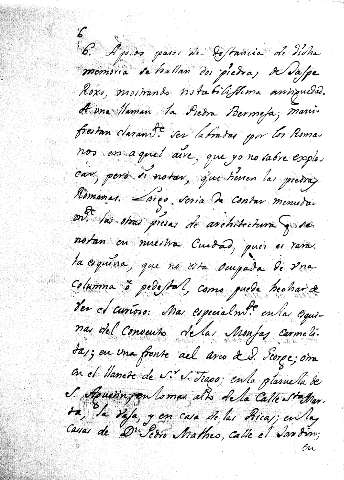 6
6. A pocos pasos de distancia de dicha
memoria se hallan dos piedras de Jaspe
Roxo, mostrando notabilissima antiguedad.
A una llaman la Piedra Bermeja; mani-
fiestan claramte. ser labradas por los Roma
nos en aquel aire, que yo no sabre expli-
car, pero sí notar, que tienen las piedras
Romanas. Largo seria de contar menuda-
mte. las otras piezas de architectura q se
notan en nuestra Ciudad; pues es rara
la esquina, que no esta ocupada de una
columna ô pedestal, como puede hechar de
ver el curioso: Mas especialmte. en las esqui-
nas del Convento de las Monjas carmeli-
tas; en una frente al arco de S. George; otra
en el llanete de Sr. S. Tiago; en la plazuela de
S. Agustin; en lo mas alto de la Calle Sta. Mar-
ta, de la Vaja y en casa de las Ricas; en las
casas de Dn. Pedro Matheo, calle el Jardin;
en